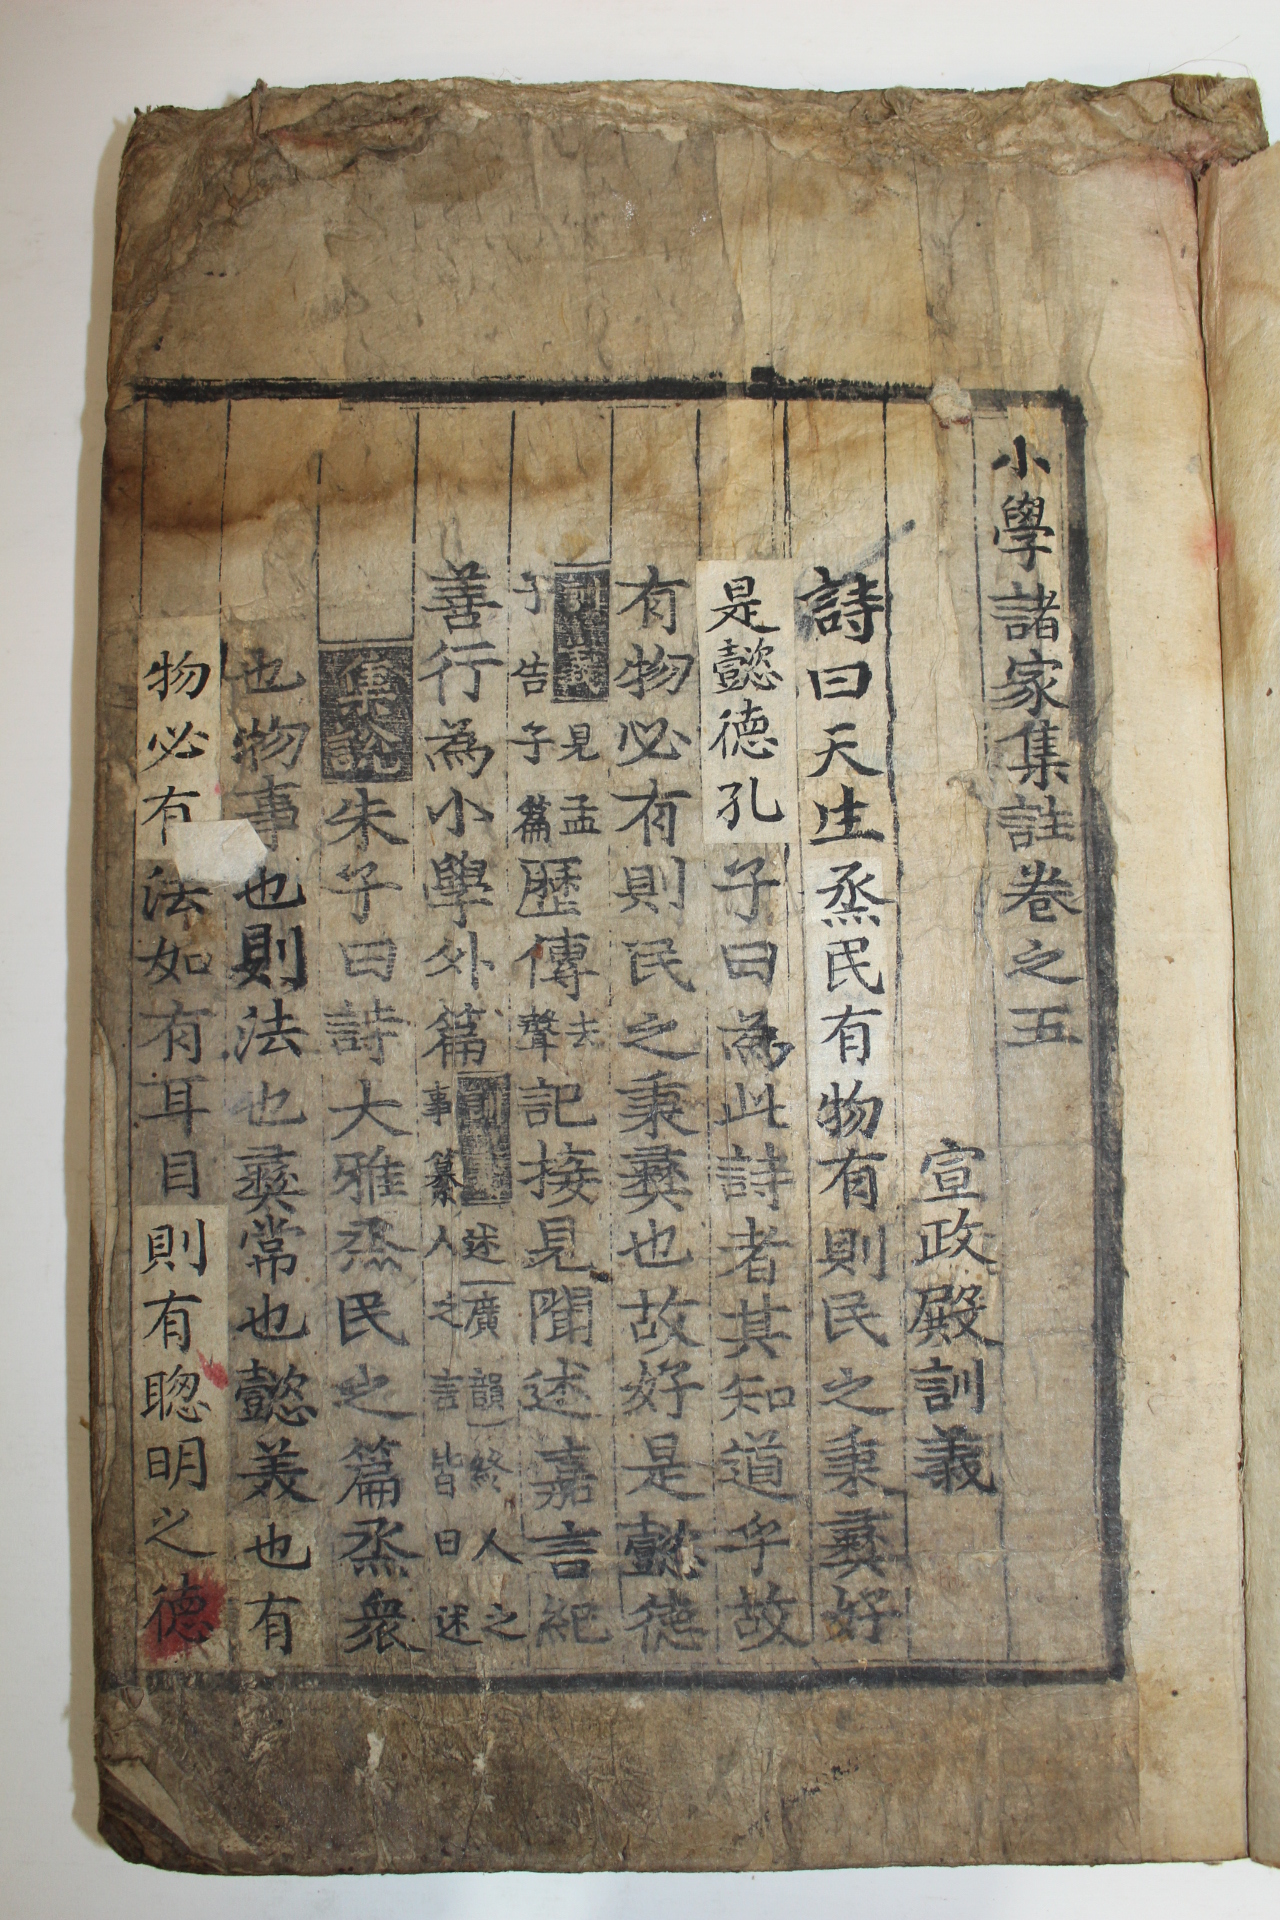 小學諸家集註卷之五
宣政殿訓義
詩曰天生烝民有物有則民之秉彝好
是懿德孔子曰為此詩者其知道乎故
有物必有則民之秉彝也故好是懿德
訓義見孟子告子篇歷傳去聲記接見聞述嘉言紀
善行為小學外篇訓義述廣韻終人之事纂人之言皆曰述
集說朱子曰詩大雅烝民之篇烝衆
也物事也則法也彝常也懿美也有
物必有法如有耳目則有聰明之德